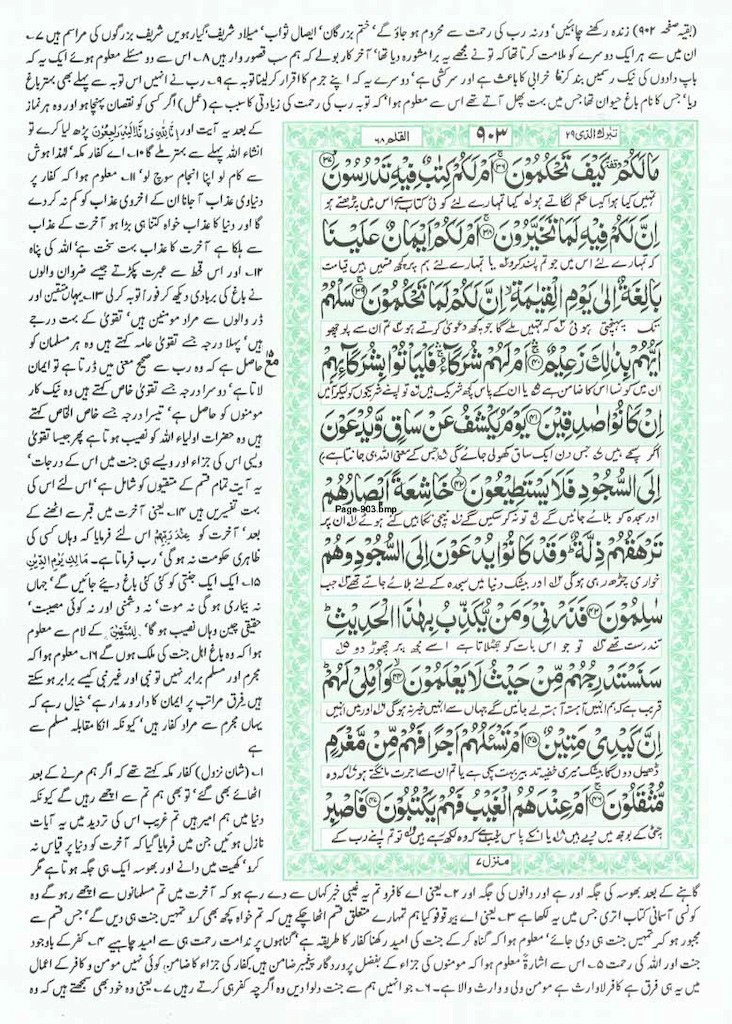 (بقیہ صفحہ ۹۰۲) زندہ رکھنے چاہئیں' ورنہ رب کی رحمت سے محروم ہو جاؤ گے' ختم بزرگان' ایصال ثواب' میلاد شریف' گیارہویں شریف بزرگوں کی مراسم ہیں ۷۔
ان میں سے ہر ایک دوسرے کو ملامت کرتا تھا کہ تو نے مجھے یہ برا مشورہ دیا تھا' آخر کار بولے کہ ہم سب قصور وار ہیں ۸۔ اس سے دو مسئلے معلوم ہوئے ایک یہ کہ
باپ دادوں کی نیک رسمیں بند کرنا خرابی کا باعث ہے اور سرکشی ہے' دوسرے یہ کہ اپنے جرم کا اقرار کر لینا توبہ ہے ۹۔ رب نے انہیں اس توبہ سے پہلے بھی بہتر باغ
دیا' جس کا نام باغ حیوان تھا جس میں بہت پھل آتے تھے اس سے معلوم ہوا' کہ توبہ رب کی رحمت کی زیادتی کا سبب ہے (عمل) اگر کسی کو نقصان پہنچا ہو اور وہ ہر نماز
تبرك الذي ۲۹
۹۰۳
القلم ۶۸
مَا لَكُمْ كَيْفَ تَحْكُمُونَ ۳۶ أَمْ لَكُمْ كِتٰبٌ فِيهِ تَدْرُسُونَ ۳۷
تمہیں کیا ہوا کیسا حکم لگاتے ہو کیا تمہارے لئے کوئی کتاب ہے اس میں پڑھتے ہو
إِنَّ لَكُمْ فِيهِ لَمَا تَخَيَّرُونَ ۳۸ أَمْ لَكُمْ أَيْمَانٌ عَلَيْنَا
کہ تمہارے لئے اس میں جو تم پسند کرو یا تمہارے لئے ہم پر کچھ قسمیں ہیں قیامت
بَالِغَةٌ إِلٰى يَوْمِ الْقِيٰمَةِ إِنَّ لَكُمْ لَمَا تَحْكُمُونَ ۳۹ سَلْهُمْ
تک پہنچتی ہوئی کہ تمہیں ملے گا جو کچھ دعویٰ کرتے ہو تم ان سے پوچھو
أَيُّهُمْ بِذٰلِكَ زَعِيمٌ ۴۰ أَمْ لَهُمْ شُرَكَاءُ فَلْيَأْتُوا بِشُرَكَائِهِمْ
ان میں کونسا اس کا ضامن ہے یا ان کے پاس کچھ شریک ہیں تو اپنے شریکوں کو لیکر آئیں
إِنْ كَانُوا صٰدِقِينَ ۴۱ يَوْمَ يُكْشَفُ عَنْ سَاقٍ وَّيُدْعَوْنَ
اگر سچے ہیں جس دن ایک ساق کھولی جائے گی جس کے معنی اللہ ہی جانتا ہے
إِلَى السُّجُودِ فَلَا يَسْتَطِيعُونَ ۴۲ خَاشِعَةً أَبْصَارُهُمْ
Page-903.bmp
اور سجدہ کو بلائے جائیں گے تو نہ کر سکیں گے نیچی نگاہیں کئے ہوئے ان پر
تَرْهَقُهُمْ ذِلَّةٌ وَقَدْ كَانُوا يُدْعَوْنَ إِلَى السُّجُودِ وَهُمْ
خواری چڑھ رہی ہوگی اور بیشک دنیا میں سجدہ کے لئے بلائے جاتے تھے جب
سٰلِمُونَ ۴۳ فَذَرْنِي وَمَنْ يُّكَذِّبُ بِهٰذَا الْحَدِيثِ
تندرست تھے تو جو اس بات کو جھٹلاتا ہے اسے مجھ پر چھوڑ دو
سَنَسْتَدْرِجُهُمْ مِّنْ حَيْثُ لَا يَعْلَمُونَ ۴۴ وَأُمْلِي لَهُمْ
قریب ہے کہ ہم انہیں آہستہ آہستہ لے جائیں گے جہاں سے انہیں خبر نہ ہوگی اور میں انہیں
إِنَّ كَيْدِي مَتِينٌ ۴۵ أَمْ تَسْـَٔلُهُمْ أَجْرًا فَهُمْ مِّنْ مَّغْرَمٍ
ڈھیل دوں گا بیشک میری خفیہ تدبیر بہت پکی ہے یا تم ان سے اجرت مانگتے ہو کہ وہ
مُّثْقَلُونَ ۴۶ أَمْ عِنْدَهُمُ الْغَيْبُ فَهُمْ يَكْتُبُونَ ۴۷ فَاصْبِرْ
چٹی کے بوجھ میں دبے ہیں یا انکے پاس غیب ہے کہ وہ لکھ رہے ہیں تو تم اپنے رب کے
منزل ۷
کے بعد یہ آیت اور انا للہ وانا الیہ راجعون پڑھ لیا کرے تو
انشاء اللہ پہلے سے بہتر ملے گا ۱۰۔ اے کفار مکہ' لہٰذا ہوش
سے کام لو اپنا انجام سوچ لو' ۱۱۔ معلوم ہوا کہ کفار پر
دنیاوی عذاب آ جانا ان کے اخروی عذاب کو کم نہ کر دے
گا اور دنیا کا عذاب خواہ کتنا ہی بڑا ہو آخرت کے عذاب
سے ہلکا ہے آخرت کا عذاب بہت سخت ہے' اللہ کی پناہ
۱۲۔ اور اس قحط سے عبرت پکڑتے جیسے ضروان والوں
نے باغ کی بربادی دیکھ کر فوراً توبہ کر لی ۱۳۔ یہاں متقین اور
ڈر والوں سے مراد مومنین ہیں' تقویٰ کے بہت درجے
ہیں' پہلا درجہ جسے تقویٰ عامہ کہتے ہیں وہ ہر مسلمان کو
حاصل ہے کہ وہ رب سے صحیح معنی میں ڈرتا ہے تو ایمان
لاتا ہے' دوسرا درجہ جسے تقویٰ خاص کہتے ہیں وہ نیک کار
مومنوں کو حاصل ہے' تیسرا درجہ جسے خاص الخاص کہتے
ہیں وہ حضرات اولیاء اللہ کو نصیب ہوتا ہے پھر جیسا تقویٰ
ویسی اس کی جزاء اور ویسے ہی جنت میں اس کے درجات'
یہ آیت تمام قسم کے متقیوں کو شامل ہے' اس لئے اس کی
بہت تفسیریں ہیں ۱۴۔ یعنی آخرت میں قبر سے اٹھنے کے
بعد' آخرت کو عند ربہم اس لئے فرمایا کہ وہاں کسی کی
ظاہری حکومت نہ ہوگی' رب فرماتا ہے۔ مٰلک یوم الدین
۱۵۔ ایک ایک جنتی کو کئی کئی باغ دیئے جائیں گے' جہاں
نہ بیماری ہو گی نہ موت' نہ دشمنی اور نہ کوئی مصیبت'
حقیقی چین وہاں نصیب ہو گا' للمتقین کے لام سے معلوم
ہوا کہ وہ باغ اہل جنت کی ملک ہوں گے ۱۶۔ معلوم ہوا کہ
مجرم اور مسلم برابر نہیں تو نبی اور غیر نبی کیسے برابر ہو سکتے
ہیں فرق مراتب پر ایمان کا دار و مدار ہے' خیال رہے کہ
یہاں مجرم سے مراد کفار ہیں' کیونکہ انکا مقابلہ مسلم سے
ہے
۱۔ (شان نزول) کفار مکہ کہتے تھے کہ اگر ہم مرنے کے بعد
اٹھائے بھی گئے' تو بھی ہم تم سے اچھے رہیں گے کیونکہ
دنیا میں ہم امیر ہیں تم غریب اس کی تردید میں یہ آیات
نازل ہوئیں جن میں فرمایا گیا کہ آخرت کو دنیا پر قیاس نہ
کرو' کھیت میں دانے اور بھوسہ ایک ہی جگہ ہوتا ہے مگر
گاہنے کے بعد بھوسہ کی جگہ اور ہے اور دانوں کی جگہ اور ۲۔ یعنی اے کافرو تم یہ غیبی خبر کہاں سے دے رہے ہو کہ آخرت میں تم مسلمانوں سے اچھے رہو گے وہ
کونسی آسمانی کتاب اتری جس میں یہ لکھا ہے ۳۔ یعنی اے بیوقوفو کیا ہم تمہارے متعلق قسم اٹھا چکے ہیں کہ تم خواہ کچھ بھی کرو تمہیں جنت ہی دیں گے' جس قسم سے
مجبور ہو کر تمہیں جنت ہی دی جائے' معلوم ہوا کہ گناہ کر کے جنت کی امید رکھنا کفار کا طریقہ ہے' گناہوں پر ندامت رحمت سے امید چاہیے ۴۔ کفر کے باوجود
جنت اور اللہ کی رحمت ۵۔ اس سے اشارۃً معلوم ہوا کہ مومنوں کی جزاء کے بفضل پروردگار پیغمبر ضامن ہیں کفار کی جزاء کا ضامن کوئی نہیں مومن و کافر کے اعمال
میں یہ ہی فرق ہے کافر لاوارث ہے مومن ولی و وارث والا ہے۔ ۶۔ جو انہیں ہم سے جنت دلوا دیں وہ اگرچہ کفر ہی کرتے رہیں ۷۔ یعنی وہ خود بھی سمجھتے ہیں کہ وہ